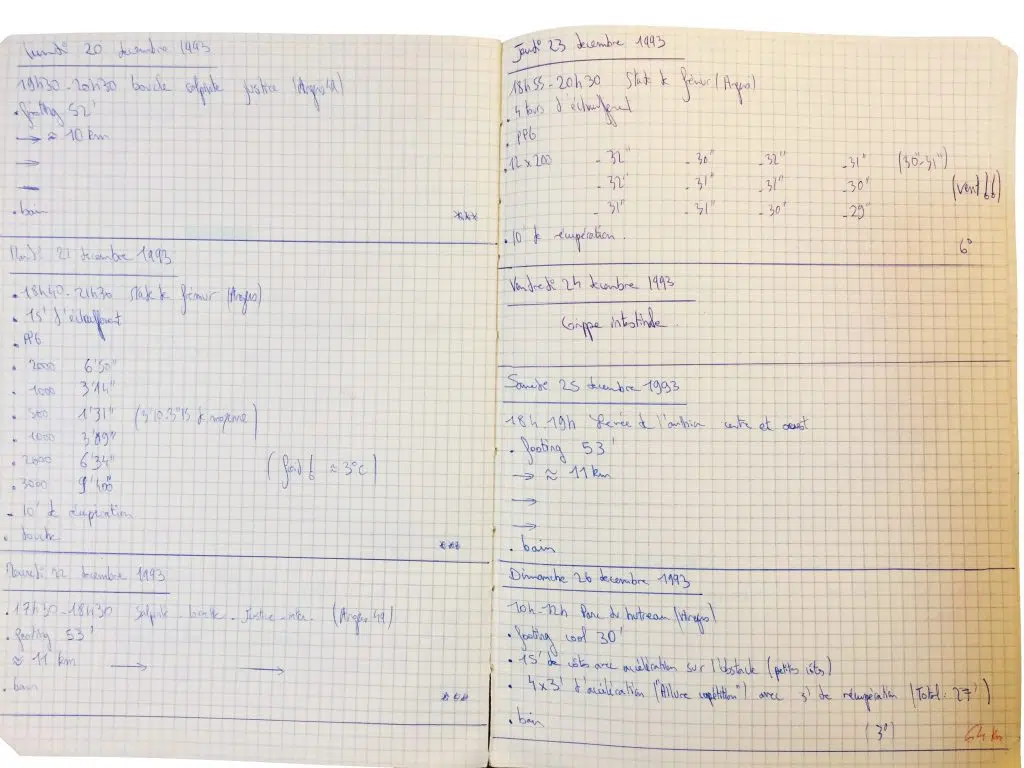 Lundi 20 décembre 1993
19h30-20h30 boucle salpinte justice (Angers 49)
. footing 52'
→ ≈ 10 km
→
. bain
***
Mardi 21 décembre 1993
. 18h40-21h30 stade de frémur (Angers)
. 15' d'échauffement
. PPG
. 2000 6'50"
. 1000 3'14"
. 500 1'31" (3'10 de moyenne)
. 1000 3'09"
. 2000 6'34" (froid ≈ 3°C)
. 3000 9'40"
- 10' de récupération
. douche
***
Mercredi 22 décembre 1993
. 17h30-18h30 Salpinte justice (Angers 49)
. footing 53'
≈ 11 km → →
. bain
***
Jeudi 23 décembre 1993
18h55-20h30 Stade de frémur (Angers)
. 4 tours d'échauffement
. PPG
. 12 x 200 - 32" - 30" - 32" - 31" (30"-31")
- 32" - 31" - 31" - 30" (vent)
- 31" - 31" - 30" - 29"
. 10' de récupération.
6°
Vendredi 24 décembre 1993
Grippe intestinale
Samedi 25 décembre 1993
18h-19h et
. footing 53'
→ ≈ 11 km
→
→
. bain
Dimanche 26 décembre 1993
10h-12h Parc du hutreau (Angers)
. footing cool 30'
. 15' de côtes avec accélération sur l'obstacle (petites côtes)
. 4x3' d'accélération ("Allure compétition") avec 3' de récupération (Total: 27')
. bain
(3°)
64 km